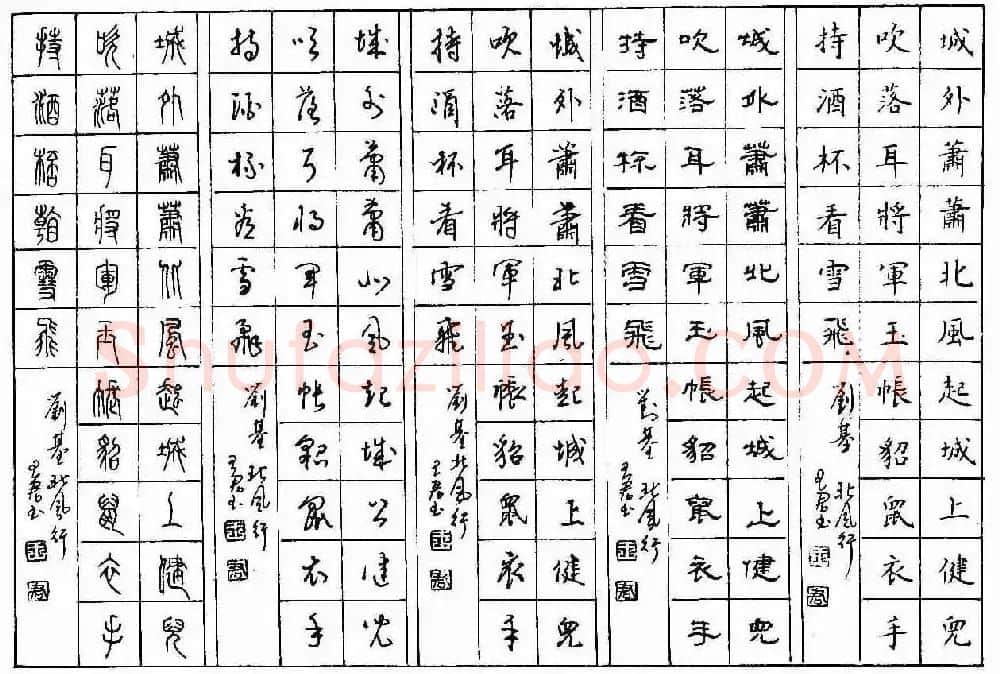 城外蕭蕭北風起城上健兒
吹落耳將軍玉帳貂鼠衣手
持酒杯看雪飛
劉基
北風行
城外蕭蕭北風起城上健兒
吹落耳將軍玉帳貂鼠衣手
持酒杯看雪飛
劉基
北風行
城外蕭蕭北風起城上健兒
吹落耳將軍玉帳貂鼠衣手
持酒杯看雪飛
劉基北風行
城外蕭蕭北風起城上健兒
吹落耳將軍玉帳貂鼠衣手
持酒杯看雪飛
劉基北風行
城外蕭蕭北風起城上健兒
吹落耳將軍玉帳貂鼠衣手
持酒杯看雪飛
劉基北風行
Shufaziliao.COM